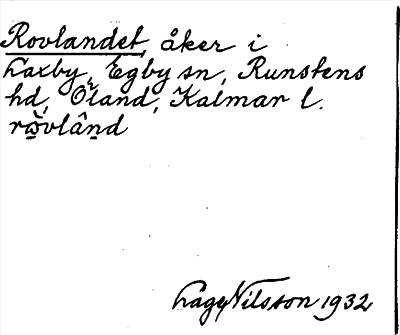 Rovlandet, åker i
Laxby, Egby sn, Runstens
hd, Öland, Kalmar l.
rɷ̀vlând
Håge Nilsson 1932